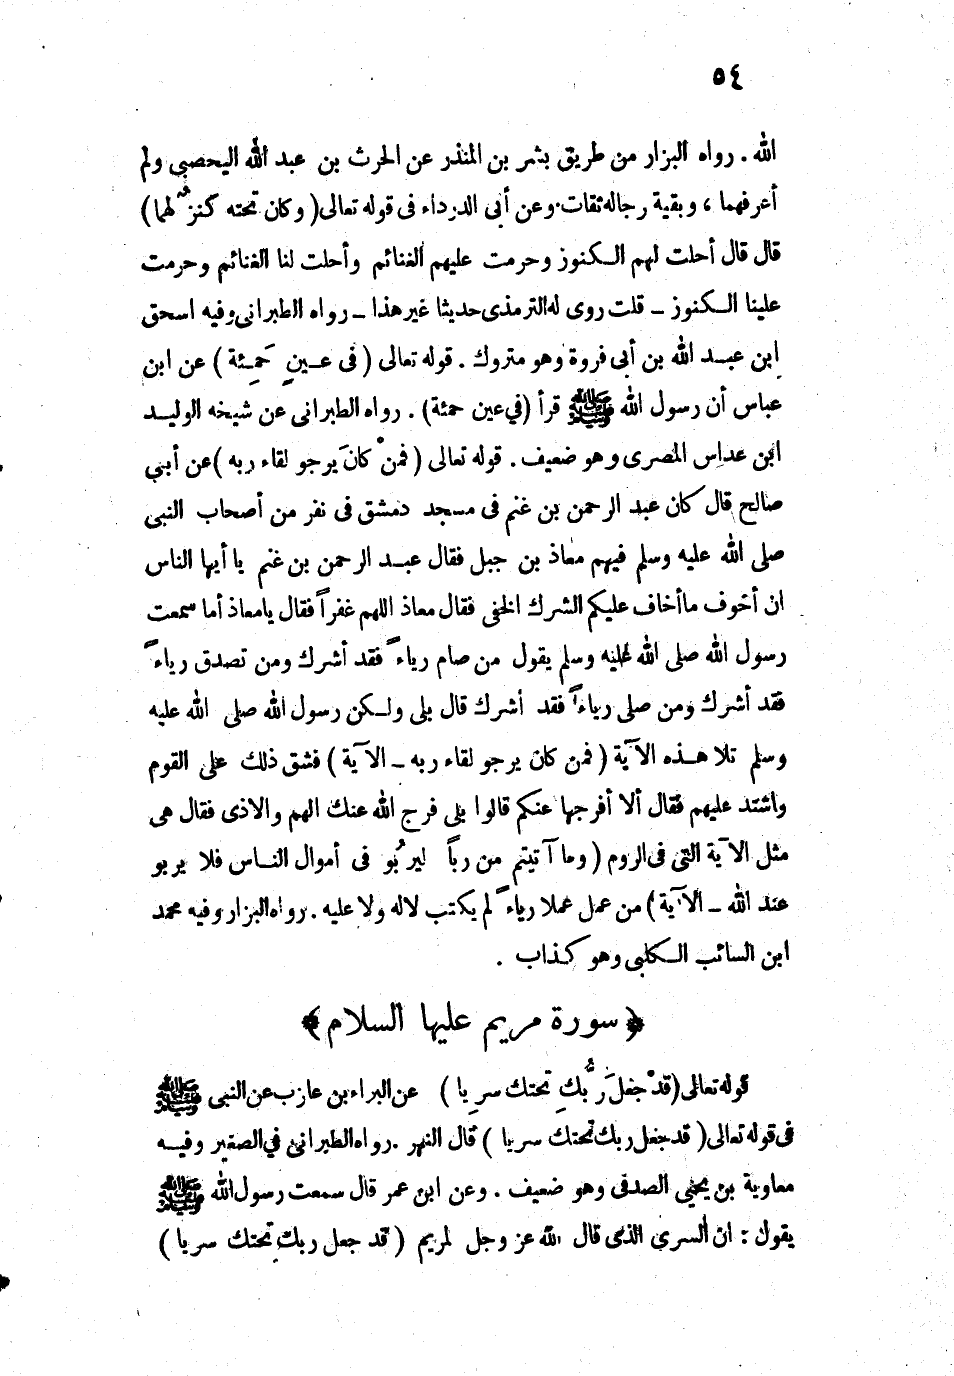 ٥٤
الله . رواه البزار من طريق بشر بن المنذر عن الحرث بن عبد الله اليحصبي ولم
أعرفهما ، وبقية رجاله ثقات . وعن أبي الدرداء في قوله تعالى ( وكان تحته كنز لهما )
قال قال أحلت لهم الكنوز وحرمت عليهم الغنائم وأحلت لنا الغنائم وحرمت
علينا الكنوز ــ قلت روى له الترمذى حديثا غير هذا ــ رواه الطبرانى وفيه اسحق
ابن عبد الله بن أبى فروة وهو متروك . قوله تعالى ( فى عين حَمِئة ) عن ابن
عباس أن رسول الله ﷺ قرأ (في عين حمئة) . رواه الطبرانى عن شيخه الوليد
ابن عداس المصرى وهو ضعيف . قوله تعالى ( فمنْ كانَ يرجو لقاء ربه ) عن أبي
صالح قال كان عبد الرحمن بن غنم فى مسجد دمشق فى نفر من أصحاب النبى
صلى الله عليه وسلم فيهم معاذ بن جبل فقال عبد الرحمن بن غنم يا أيها الناس
ان أخوف ما أخاف عليكم الشرك الخفى فقال معاذ اللهم غفراً فقال يامعاذ أما سمعت
رسول الله صلى الله عليه وسلم يقول من صام رياءً فقد أشرك ومن تصدق رياءً
فقد أشرك ومن صلى رياءً فقد أشرك قال بلى ولكن رسول الله صلى الله عليه
وسلم تلا هذه الآية ( فمن كان يرجو لقاء ربه ــ الآية ) فشق ذلك على القوم
واشتد عليهم فقال ألا أفرجها عنكم قالوا بلى فرج الله عنك الهم والاذى فقال هى
مثل الآية التى فى الروم ( وما آتيتم من رباً ليربُو فى أموال الناس فلا يربو
عند الله ــ الآية ) من عمل عملا رياءً لم يكتب لاله ولا عليه . رواه البزار وفيه محمد
ابن السائب الكلبى وهو كذاب .
﴿ سورة مريم عليها السلام ﴾
قوله تعالى (قدْ جعلَ ربُّكِ تحتك سريا ) عن البراء بن عازب عن النبى ﷺ
فى قوله تعالى ( قد جعل ربك تحتك سريا ) قال النهر . رواه الطبرانى في الصغير وفيه
معاوية بن يحيى الصدفى وهو ضعيف . وعن ابن عمر قال سمعت رسول الله ﷺ
يقول : ان السرى الذى قال الله عز وجل لمريم ( قد جعل ربك تحتك سريا )